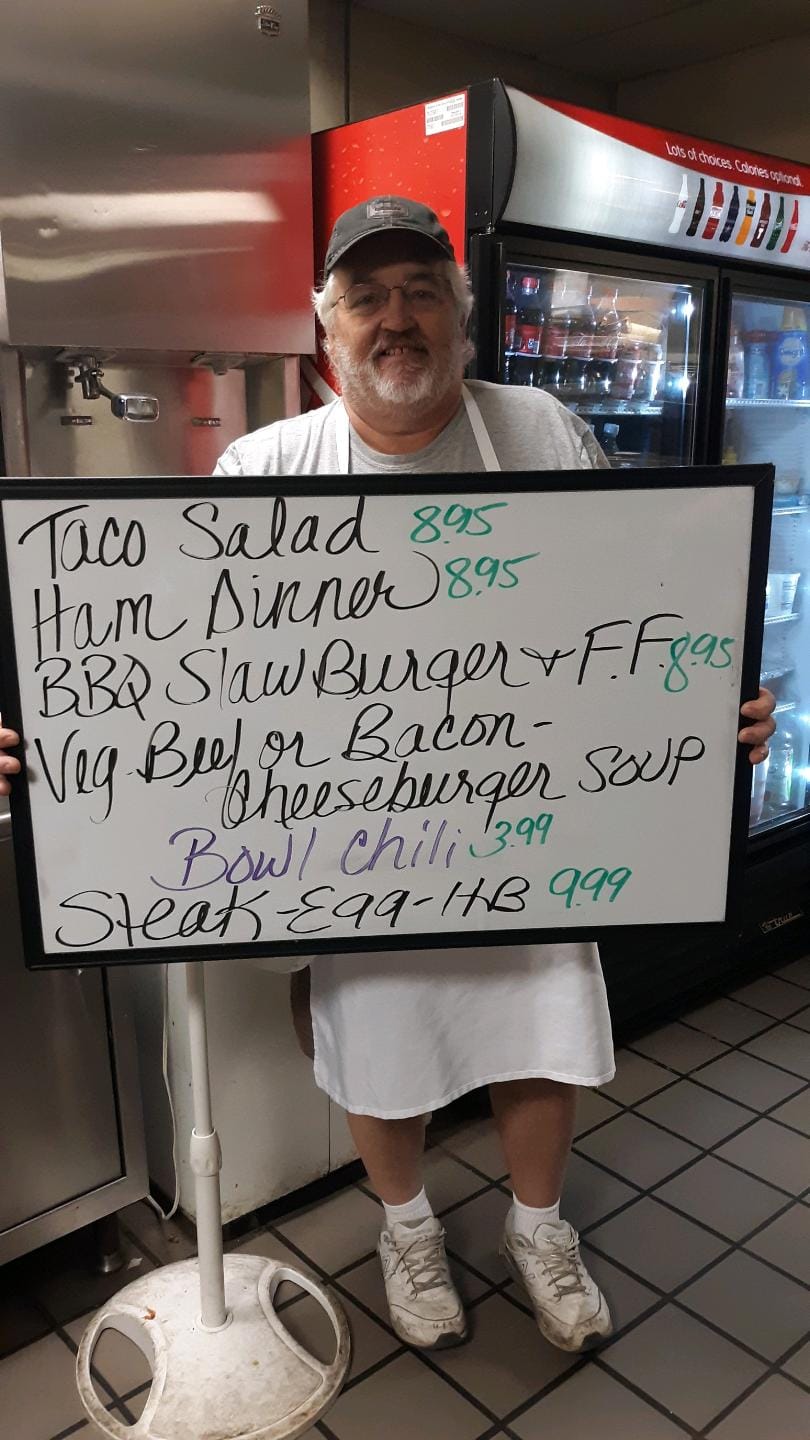 Lots of choices. Calories optional.
Taco Salad 8.95
Ham Dinner 8.95
BBQ Slaw Burger & F.F. 8.95
Veg Beef or Bacon-
Cheeseburger SOUP
Bowl Chili 3.99
Steak-Egg-HB 9.99